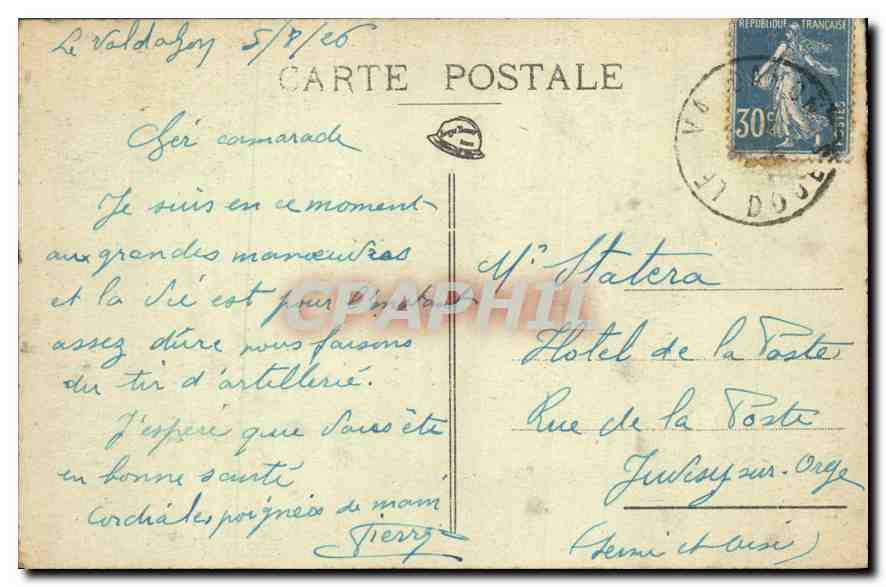 Le Valdahon 5/8/26
CARTE POSTALE
REPUBLIQUE FRANÇAISE
30c
POSTES
LE VALDAHON
DOUBS
Chér camarade
Je suis en ce moment
aux grandes manœuvres
et la vié est pour l'instant
assez dûre nous faisons
du tir d'artillerié.
J'espére que vous ête
en bonne santé
Cordiales poignées de main
Pierre
CPAPHIL
Mr Statera
Hotel de la Poste
Rue de la Poste
Juvisy sur Orge
(Seine et Oise)